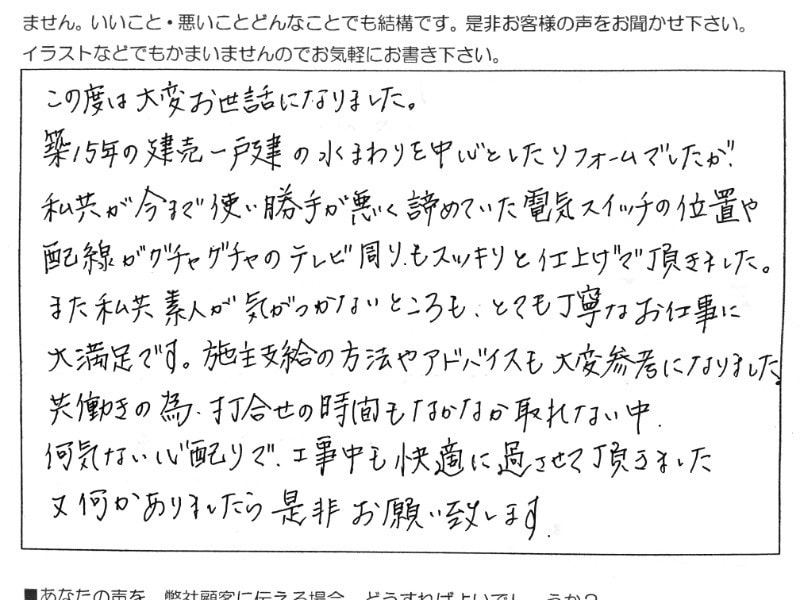 ません。いいこと・悪いことどんなことでも結構です。是非お客様の声をお聞かせ下さい。
イラストなどでもかまいませんのでお気軽にお書き下さい。
この度は大変お世話になりました。
築15年の建売一戸建の水まわりを中心としたリフォームでしたが、
私共が今まで使い勝手が悪く諦めていた電気スイッチの位置や
配線がグチャグチャのテレビ周りもスッキリと仕上げで頂きました。
また私共素人が気がつかないところも、とても丁寧なお仕事に
大満足です。施主支給の方法やアドバイスも大変参考になりました。
共働きの為、打合せの時間もなかなか取れない中、
何気ない心配りで、工事中も快適に過させて頂きました
又何かありましたら是非お願い致します。
■あなたの声を、弊社顧客に伝える場合、どうすればよいでしょうか？